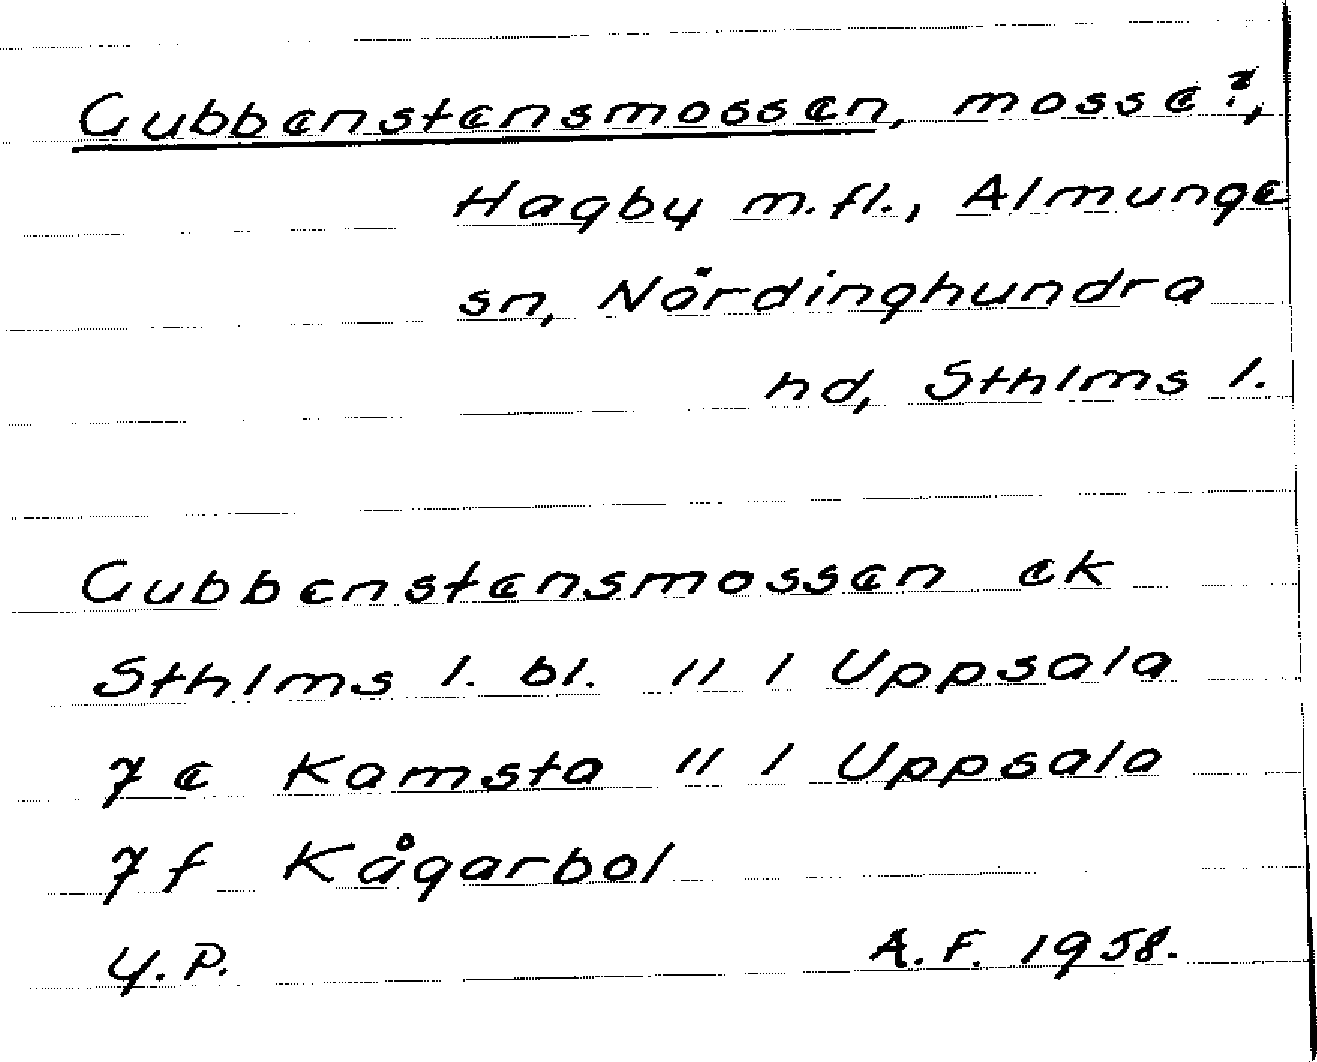 Gubbenstensmossen, mosse?,
Hagby m.fl., Almunge
sn, Närdinghundra
hd, Sthlms l.
Gubbenstensmossen ek
Sthlms l. bl. 11 I Uppsala
7 e Kamsta 11 I Uppsala
7 f Kågarbol
Y.P. A.F. 1958.